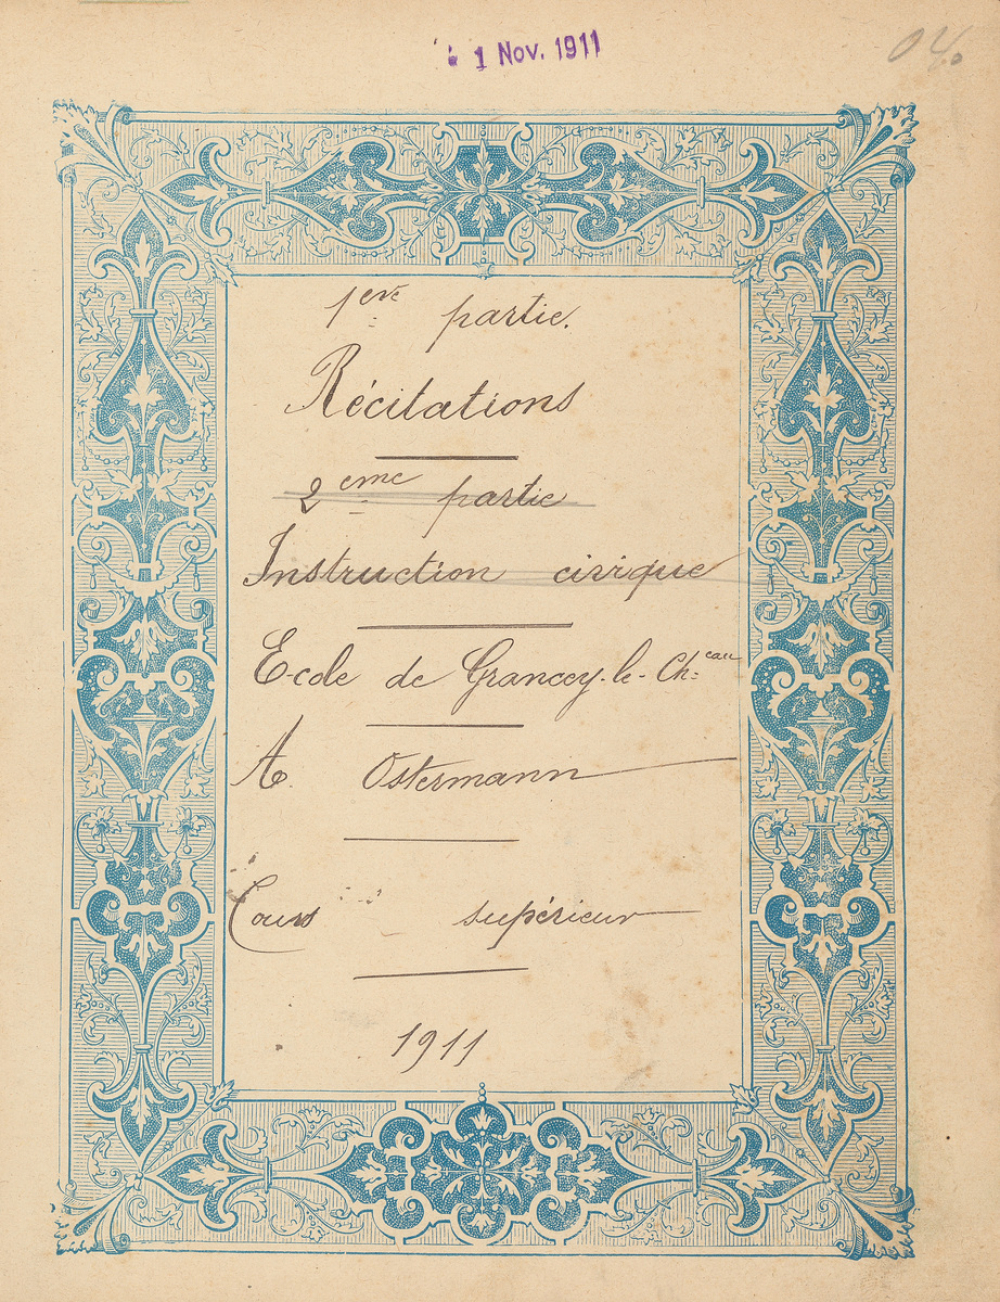 1 Nov. 1911
1ere partie.
Récitations
2eme partie
Instruction civique
Ecole de Grancey-le-Ch:eau
A. Ostermann
Cours supérieur
1911